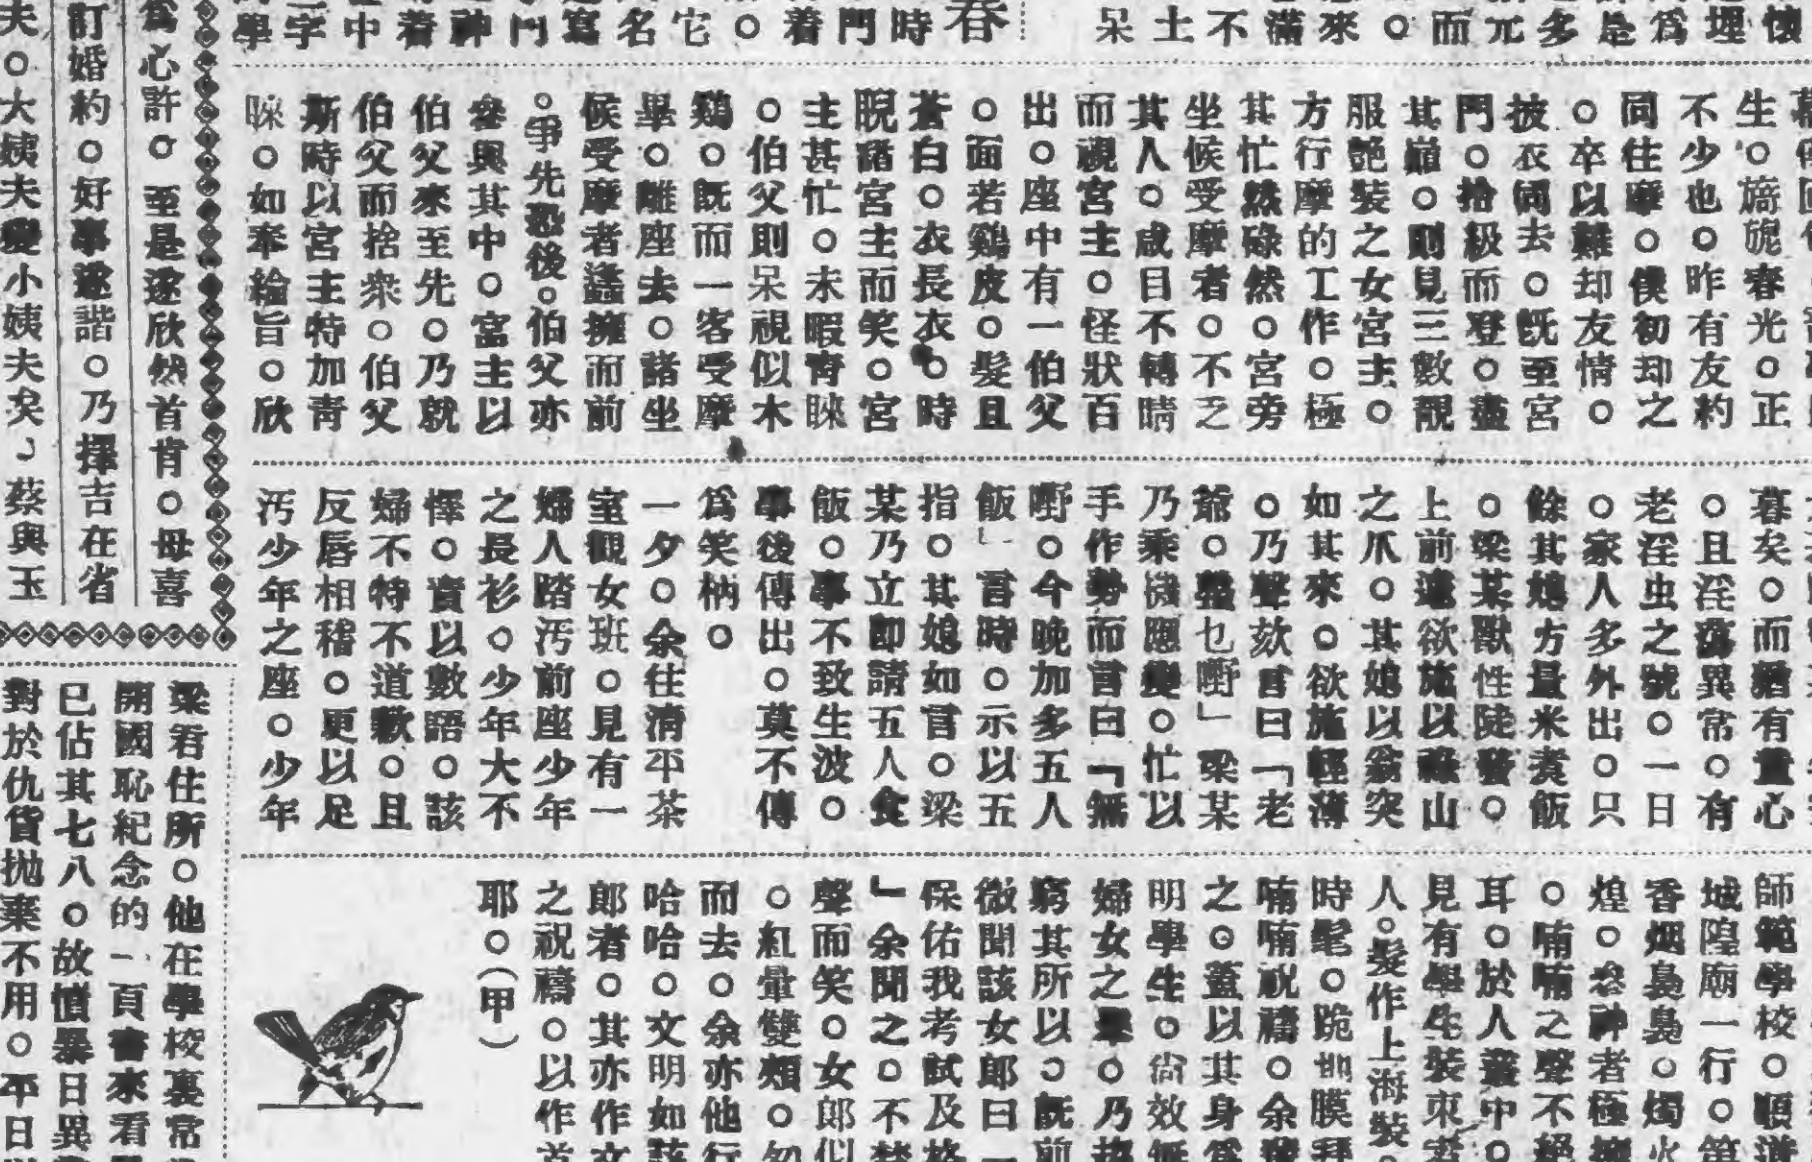 懷
埋
爲
是
多
元
而
。
來
滿
不
土
呆
春
時
門
着
。
它
名
寫
門
神
着
中
字
學
生。旖旎春光。正
不少也。昨有友約
同往摩。僕初却之
。卒以難却友情。
披衣同去。旣至宮
門。拾級而登。盡
其巔。則見三數靚
服艷裝之女宮主。
方行摩的工作。極
其忙然碌然。宮旁
坐候受摩者。不乏
其人。咸目不轉睛
而視宮主。怪狀百
出。座中有一伯父
。面若鷄皮。髮且
蒼白。衣長衣。時
睨諸宮主而笑。宮
主甚忙。未暇靑睞
。伯父則呆視似木
鷄。旣而一客受摩
畢。離座去。諸坐
候受摩者蠭擁而前
。爭先恐後。伯父亦
參與其中。宮主以
伯父來至先。乃就
伯父而捨衆。伯父
斯時以宮主特加靑
睞。如奉綸旨。欣
暮矣。而猶有童心
。且淫蕩異常。有
老淫虫之號。一日
。家人多外出。只
餘其媳方量米煑飯
。梁某獸性陡發。
上前遽欲施以祿山
之爪。其媳以翁突
如其來。欲施輕薄
。乃聲欬言曰「老
爺。整乜嘢」梁某
乃乘機應變。忙以
手作勢而言曰「無
嘢。今晚加多五人
飯」言時。示以五
指。其媳如言。梁
某乃立卽請五人食
飯。事不致生波。
事後傳出。莫不傳
爲笑柄。
一夕。余往淸平茶
室觀女班。見有一
婦人踏汚前座少年
之長衫。少年大不
懌。責以數語。該
婦不特不道歉。且
反唇相稽。更以足
汚少年之座。少年
師範學校。順道
城隍廟一行。
香烟裊裊。燭火
煌。參神者極
。喃喃之聲不絕
耳。於人叢中。
見有學生裝束
人。髮作上海裝。
時髦。跪地膜拜
喃喃祝禱。余
之。蓋以其身爲
明學生。尙效無
婦女之擧。乃
窮其所以。旣前
微聞該女郎曰「
保佑我考試及格
」余聞之。不禁
聲而笑。女郎似
。紅暈雙頰。
而去。余亦他行
哈哈。文明如該
郎者。其亦作
之祝禱。以作
耶。(甲)
爲心許。至是遂欣然首肯。母喜
訂婚約。好事遂諧。乃擇吉在省
夫。大姨夫變小姨夫矣」蔡與玉
梁君住所。他在學校裏常
開國恥紀念的一頁書來看
已佔其七八。故憤暴日異
對於仇貨抛棄不用。平日